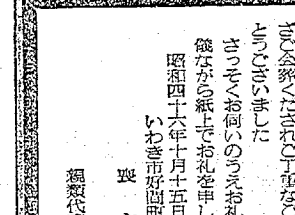 さご会葬くだされご丁重な
とうございました
さっそくお伺いのうえお礼
儀ながら紙上でお礼を申し
昭和四十六年十月十五日
いわき市好間町
喪
親類代